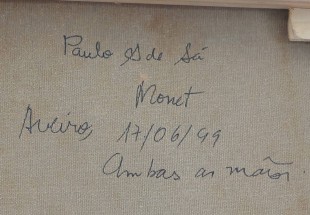 Paulo G de Sá
Monet
Aveiro, 17/06/99
Ambas as mãos.